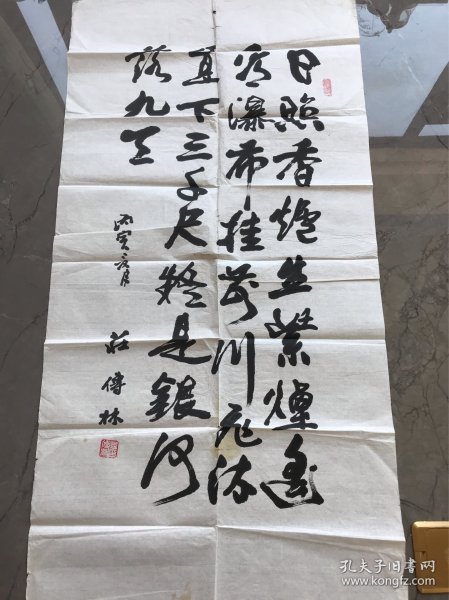 日照香爐生紫煙遥
看瀑布挂前川飛流
直下三千尺疑是銀河
落九天
丙寅月
莊傳林
孔夫子旧书网
www.kongfz.com